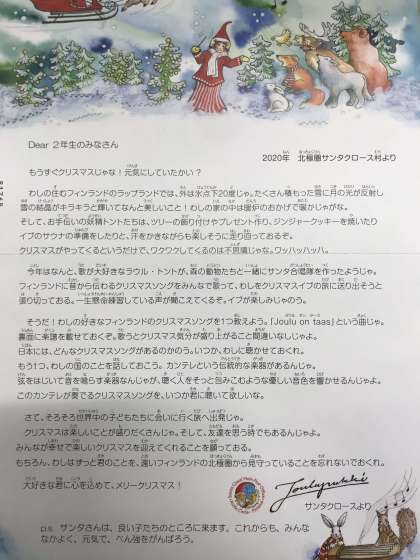 Dear 2年生のみなさん
2020年 北極圏サンタクロース村より
もうすぐクリスマスじゃな!元気にしていたかい?
わしの住むフィンランドのラップランドでは、外は氷点下20度じゃ。たくさん積もった雪に月の光が反射し
雪の結晶がキラキラと輝いてなんと美しいこと!わしの家の中は暖炉のおかげで暖かじゃがな。
そして、お手伝いの妖精トントたちは、ツリーの飾り付けやプレゼント作り、ジンジャークッキーを焼いたり
イブのサウナの準備をしたりと、汗をかきながらも楽しそうに走り回っておるぞ。
クリスマスがやってくるというだけで、ワクワクしてくるのは不思議じゃな。ワッハッハッハ。
今年はなんと、歌が大好きなラウル・トントが、森の動物たちと一緒にサンタ合唱隊を作ったようじゃ。
フィンランドに昔から伝わるクリスマスソングをみんなで歌って、わしをクリスマスイブの旅に送り出そうと
張り切っておる。一生懸命練習している声が聞こえてくるぞ。イブが楽しみじゃのう。
そうだ!わしの好きなフィンランドのクリスマスソングを1つ教えよう。「Joulu on taas」という曲じゃ。
裏面に楽譜を載せておくぞ。歌うとクリスマス気分が盛り上がること間違いなしじゃよ。
日本には、どんなクリスマスソングがあるのかのう。いつか、わしに聴かせておくれ。
もう1つ、わしの国のことを話しておこう。カンテレという伝統的な楽器があるんじゃ。
弦をはじいて音を鳴らす楽器なんじゃが、聴く人をそっと包みこむような優しい音色を響かせるんじゃよ。
このカンテレが奏でるクリスマスソングを、いつか君に聴いて欲しいな。
さて、そろそろ世界中の子どもたちに会いに行く旅へ出発じゃ。
クリスマスは楽しいことが盛りだくさんじゃ。そして、友達を思う時でもあるんじゃよ。
みんなが幸せで楽しいクリスマスを迎えてくれることを願っておる。
もちろん、わしはずっと君のことを、遠いフィンランドの北極圏から見守っていることを忘れないでおくれ。
大好きな君に心を込めて、メリークリスマス!
Joulupukki
サンタクロースより
サンタさんは、良い子たちのところに来ます。これからも、みんな
なかよく、元気で、べん強をがんばろう。